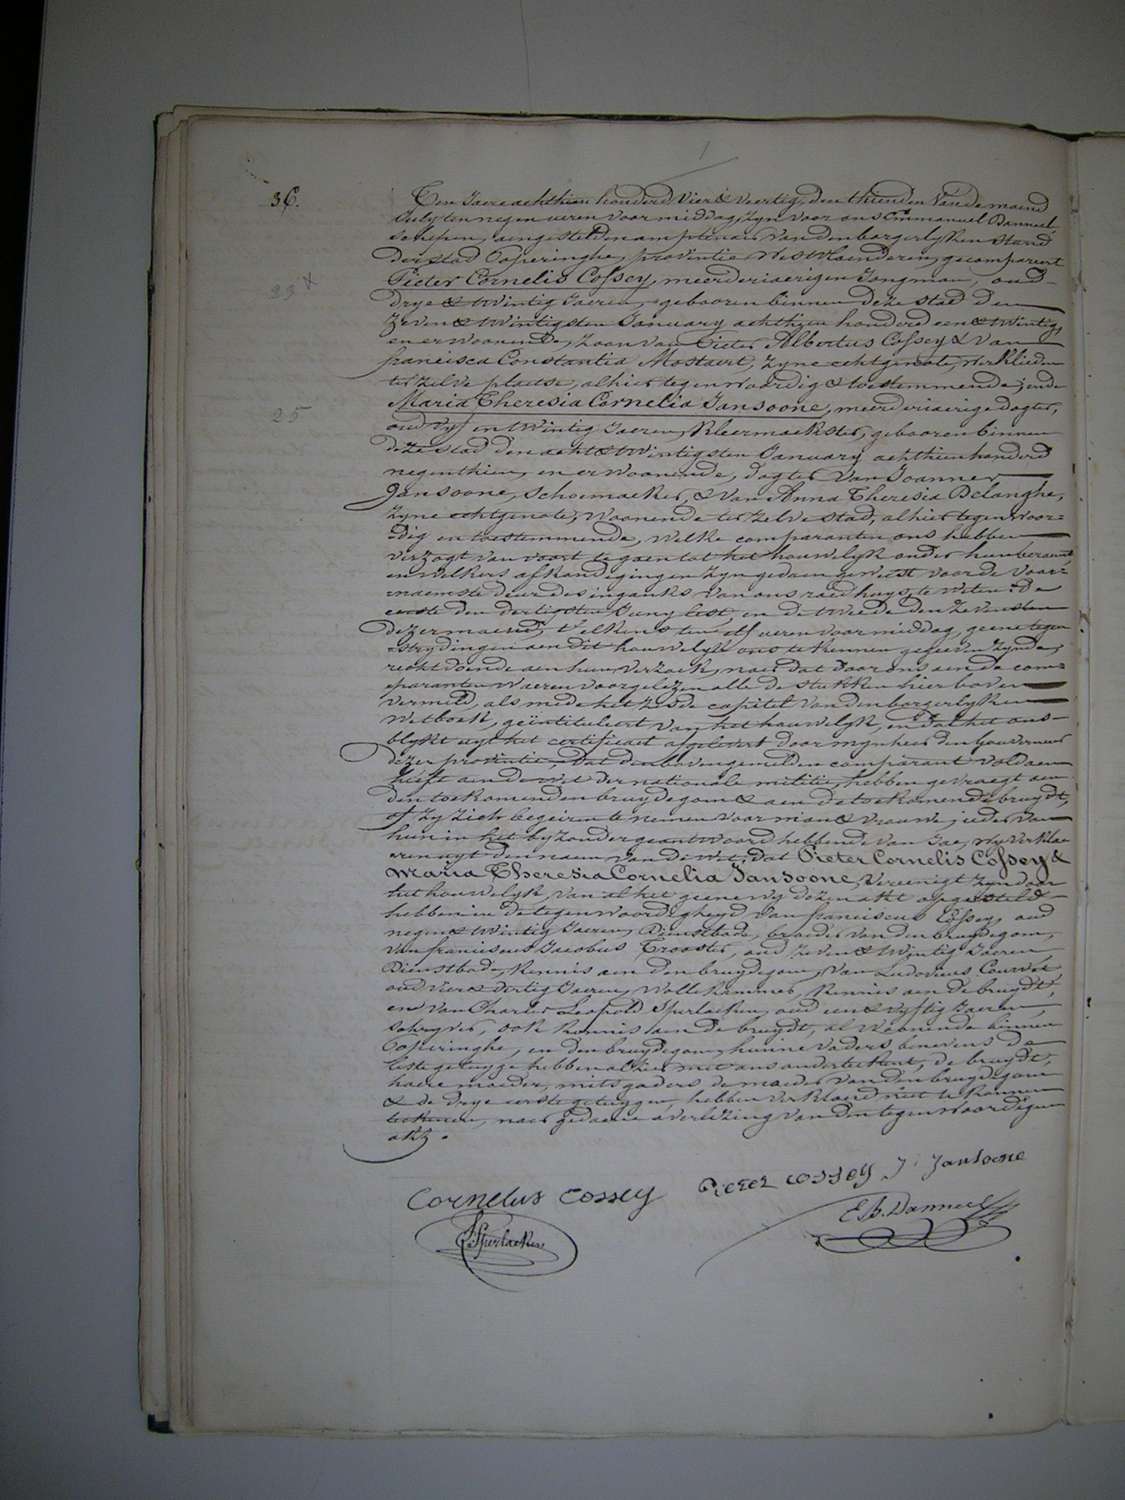 36.
Ten Jaere achthien honderd vier & veertig, den thienden van de maend
July ten negen ueren voor middag, zyn voor ons Emmanuel Danneel
schepen, aengestelden amptenaer van den borgerlyken stand
der stad Poperinghe, provintie Westvlaenderen, gecompareert
Pieter Cornelis Cossey, meerderjaerigen Jongman, oud
23 x
drye & twintig Jaeren, gebooren binnen deze stad den
zeven & twintigsten January achthien honderd een & twintig,
en er woonende, zoon van Pieter Albertus Cossey & van
francisca Constantia Mostaert, zyne echtgenote, werklieden
ter zelve plaetse, alhier tegenwoordig & toestemmende; ende
Maria Theresia Cornelia Jansoone, meerderjaerige dogter,
25
oud vyf en twintig Jaeren, Kleermaekster, gebooren binnen
deze stad den acht & twintigsten January achthien honderd
negenthien, en er woonende, dogter van Joannes
Jansoone, schoemaeker, & van Anna Theresia Delanghe,
zyne echtgenote, woonende ter zelve stad, alhier tegenwoor-
dig en toestemmende, welke comparanten ons hebben
verzogt van voort te gaen tot het houwelyk onder hun beraemt
en welkers afkondigingen zyn gedaen geweest voor de voor-
naemste deure des ingangs van ons raedhuys, te weten: de
eerste den dertigsten Juny lest, en de tweede den zevensten
dezer maend, telkens ten elf ueren voormiddag, geene tegen
strydingen aen dit houwelyk ons te kennen gegeven zynde,
recht doende aen hun verzoek, naer dat door ons aen de com-
paranten waeren voorgelezen alle de stukken hier boven
vermeld, als mede het zesde capitel van den borgerlyken
wetboek, geïntituleert van het houwelyk, en dat het ons
blykt uyt het certificaet afgelevert door mynheer den Gouverneur
dezer provintie, dat den bovengemelden comparant voldaen
heeft aen de wet der nationale militie, hebben gevraegt aen
den toekomenden bruydegom & aen de toekomende bruydt,
of zy zich begeiren te nemen voor man & vrouwe, ieder van
hun in het byzonder geantwoord hebbende van Jae, wy verklae
ren uyt den naem van de wet, dat Pieter Cornelis Cossey &
Maria Theresia Cornelia Jansoone, vereenigt zyn door
het houwelyk, van al het geene wy dezen akt opgesteld
hebben in de tegenwoordigheyd van franciscus Cossey, oud
negen & twintig Jaeren, Dienstbode, broeder van den bruydegom,
van franciscus Jacobus Trooster, oud zeven & twintig Jaeren,
Dienstbode, Kennis aen den bruydegom, van Ludovicus
oud vier & dertig Jaeren, Wollekammer, Kennis aen de bruydt,
en van Charles Leopold Spurlaeken, oud een & vyftig Jaeren,
schryver, ook kennis aen de bruydt, al woonende binnen
Poperinghe, en den bruydegom, hunne vaders benevens de
leste getuyge hebben alhier met ons onderteekent, de bruydt,
haere moeder, mitsgaders de moeder van den bruydegom
& de drye eerste getuygen hebben verklaerd niet te konnen
teekenen, naer gedaene overlezing van den tegenwoordigen
akt.
Cornelus Cossey Pieter Cossey J: Jansoone
Spurlaeken E.B. Danneel